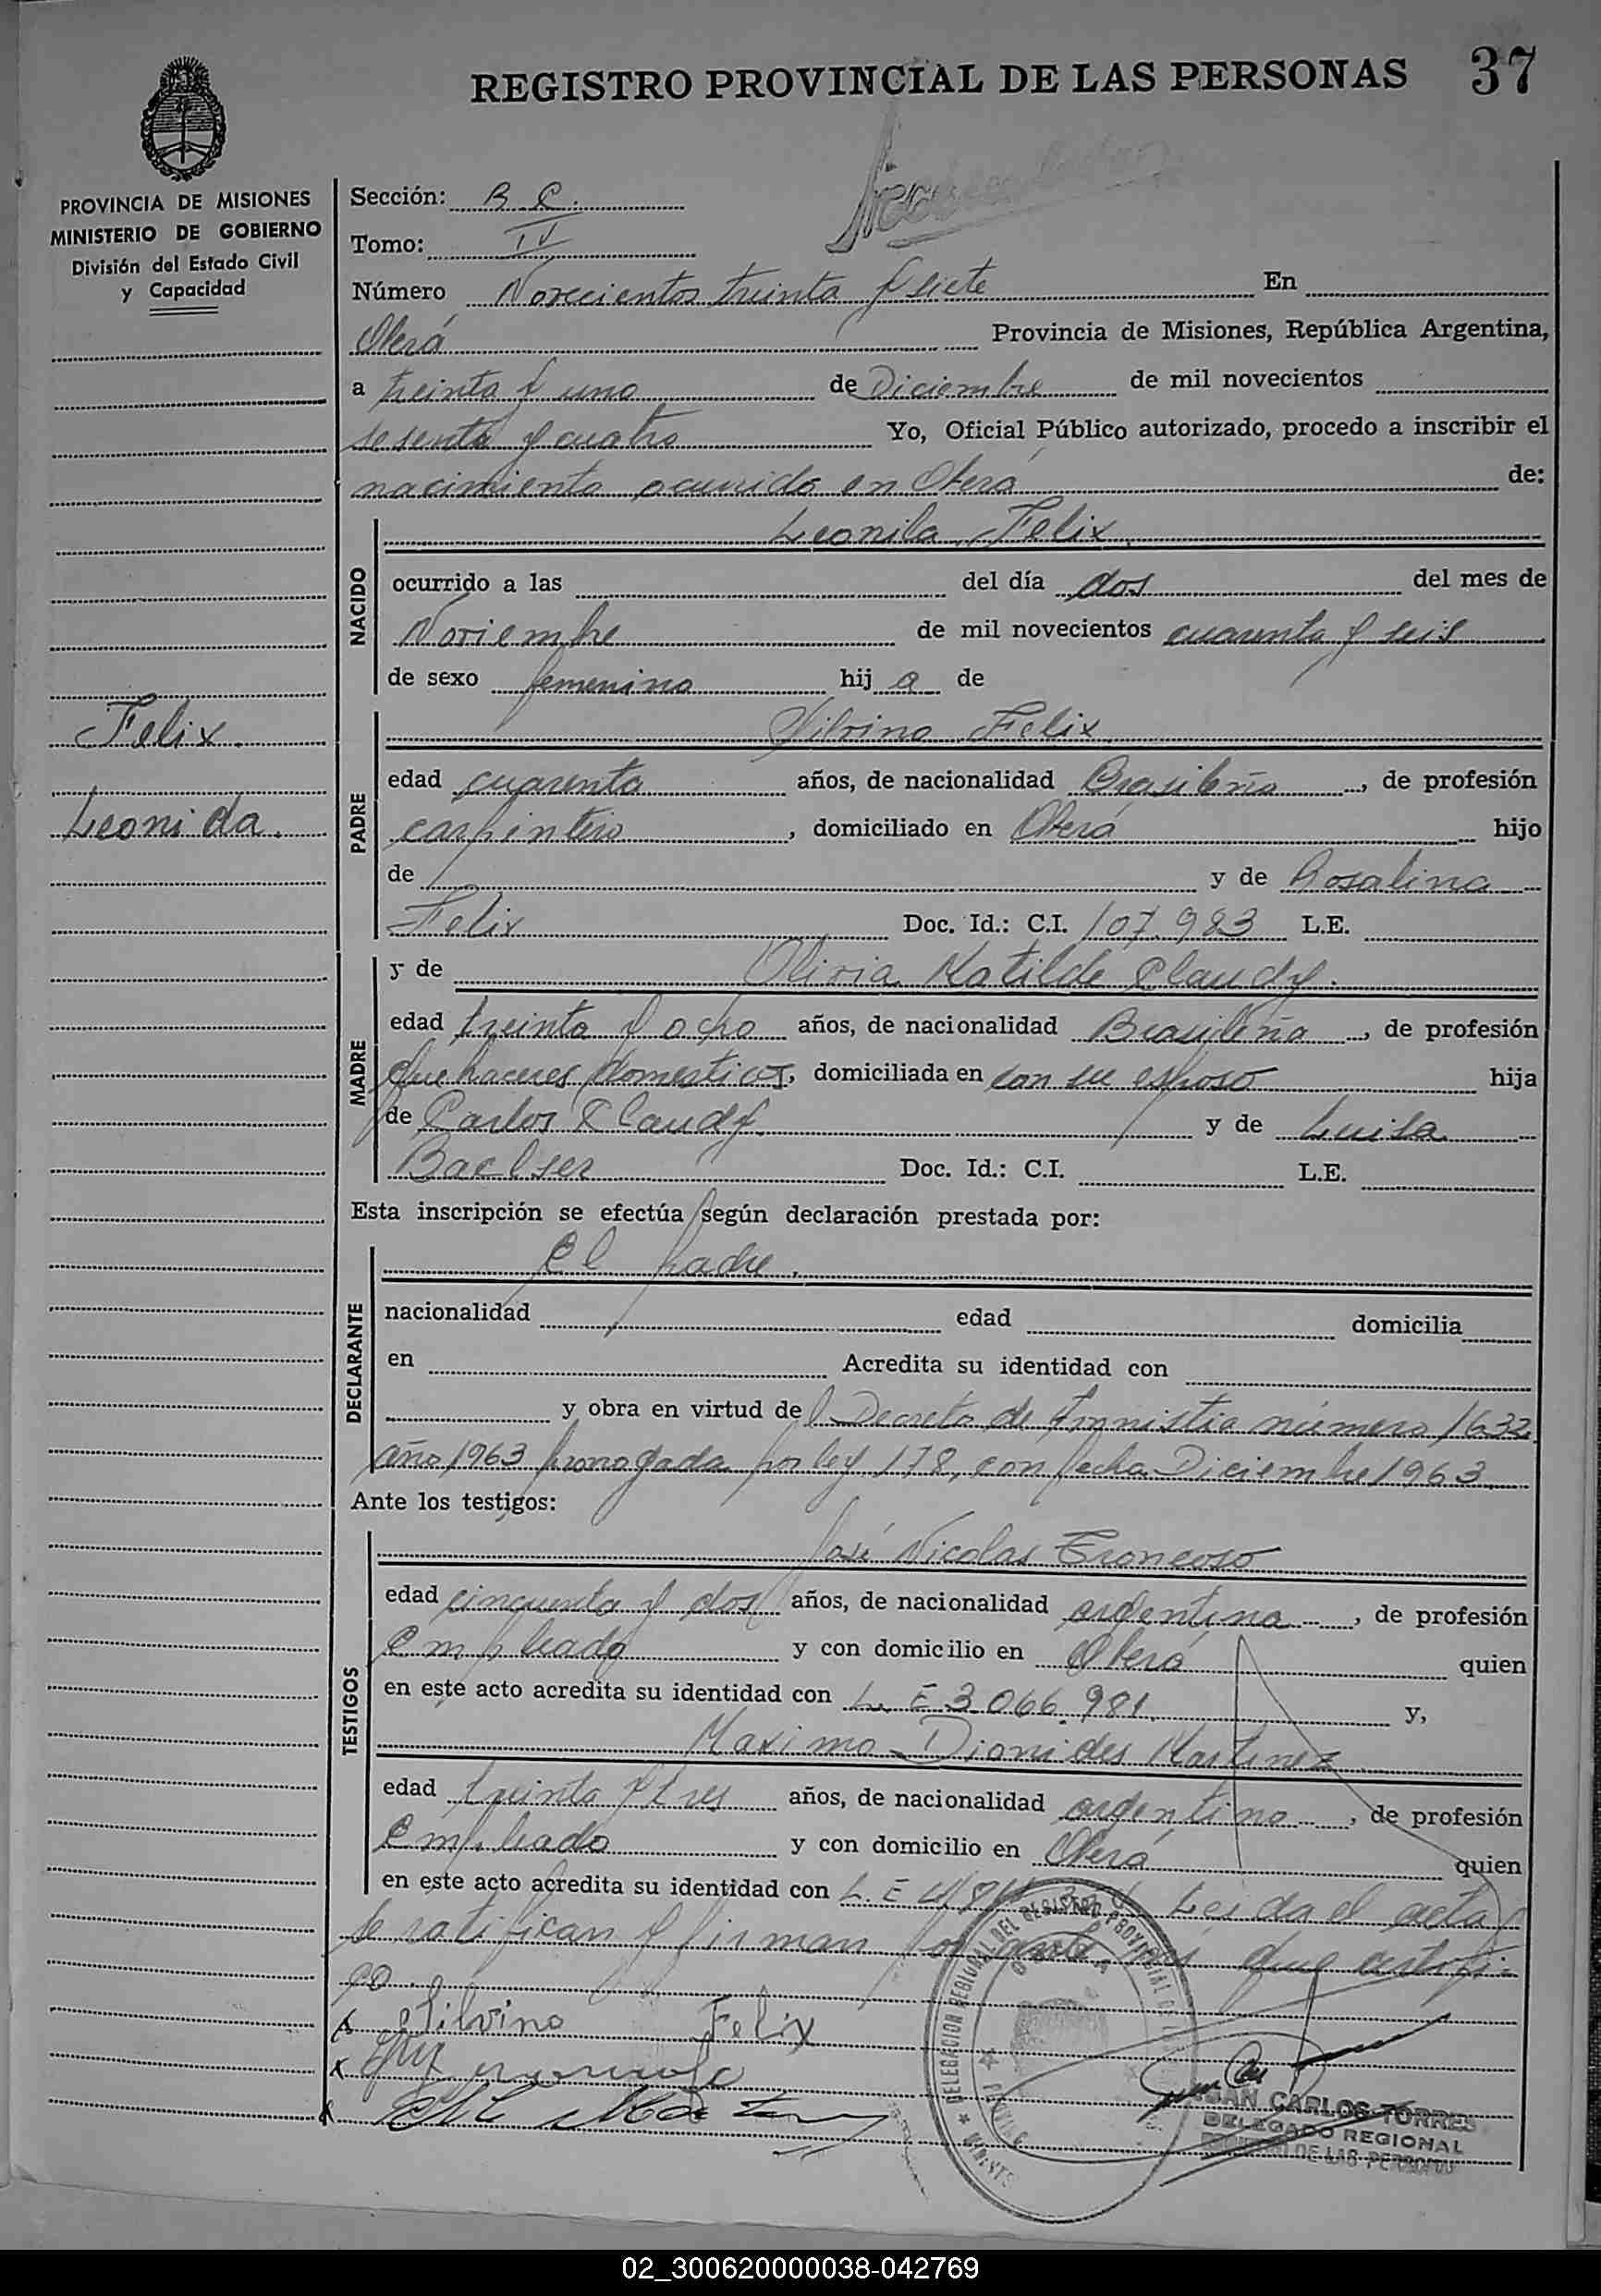 REGISTRO PROVINCIAL DE LAS PERSONAS 37
PROVINCIA DE MISIONES
MINISTERIO DE GOBIERNO
División del Estado Civil
y Capacidad
Felix.
Leonida.
Sección: B C.
Tomo: IV
Número Novecientos treinta y siete En
Oberá Provincia de Misiones, República Argentina,
a treinta y uno de Diciembre de mil novecientos
sesenta y cuatro Yo, Oficial Público autorizado, procedo a inscribir el
nacimiento ocurrido en Oberá de:
NACIDO
Leonila Felix.
ocurrido a las del día dos del mes de
Noviembre de mil novecientos cuarenta y seis
de sexo femenino hij a de
PADRE
Silvino Felix
edad cuarenta años, de nacionalidad Brasileña, de profesión
carpintero, domiciliado en Oberá hijo
de y de Rosalina
Felix Doc. Id.: C.I. 107.983 L.E.
MADRE
y de Olivia Matilde Claudy.
edad treinta y ocho años, de nacionalidad Brasileña, de profesión
Quehaceres domesticos, domiciliada en con su esposo hija
de Carlos Claudy y de Luisa
Baelser Doc. Id.: C.I. L.E.
Esta inscripción se efectúa según declaración prestada por:
DECLARANTE
El padre.
nacionalidad edad domicilia
en Acredita su identidad con
y obra en virtud del Decreto de Amnistia número 1632
año 1963 prorrogada por ley 178, con fecha Diciembre 1963
Ante los testigos:
TESTIGOS
José Nicolas Troncoso
edad cincuenta y dos años, de nacionalidad argentina, de profesión
Empleado y con domicilio en Oberá quien
en este acto acredita su identidad con L. E 3.066.981. y,
Maximo Dionides Martinez
edad treinta y tres años, de nacionalidad argentino, de profesión
Empleado y con domicilio en Oberá quien
en este acto acredita su identidad con L. E Leida el acta
se ratifican y firman por ante mi que certifi-
co.
x Silvino Felix
x
x
DELEGACION REGIONAL DEL REGISTRO PROVINCIAL
JUAN CARLOS TORRES
DELEGADO REGIONAL
DE LAS PERSONAS
02_300620000038-042769